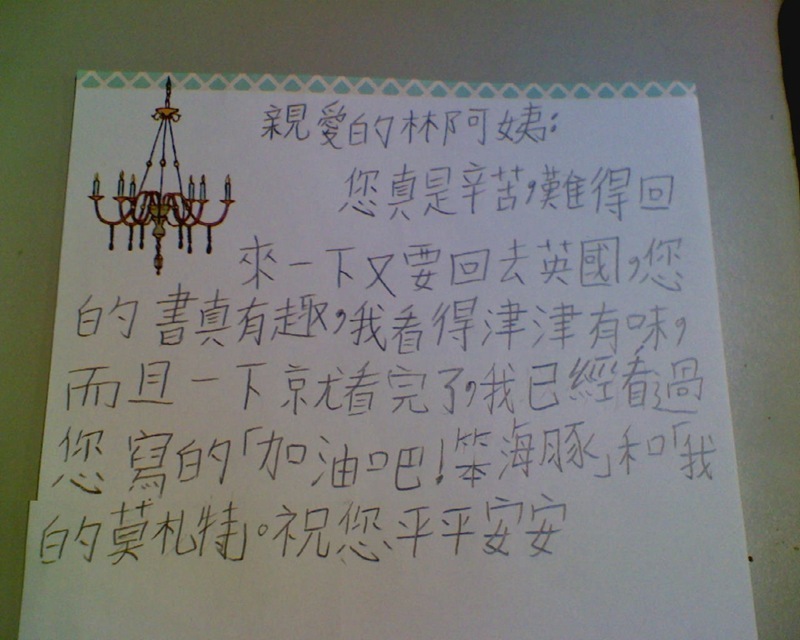 親愛的林阿姨：
您真是辛苦，難得回
來一下又要回去英國，您
的書真有趣，我看得津津有味，
而且一下就看完了，我已經看過
您寫的「加油吧！笨海豚」和「我
的莫札特」。祝您平平安安